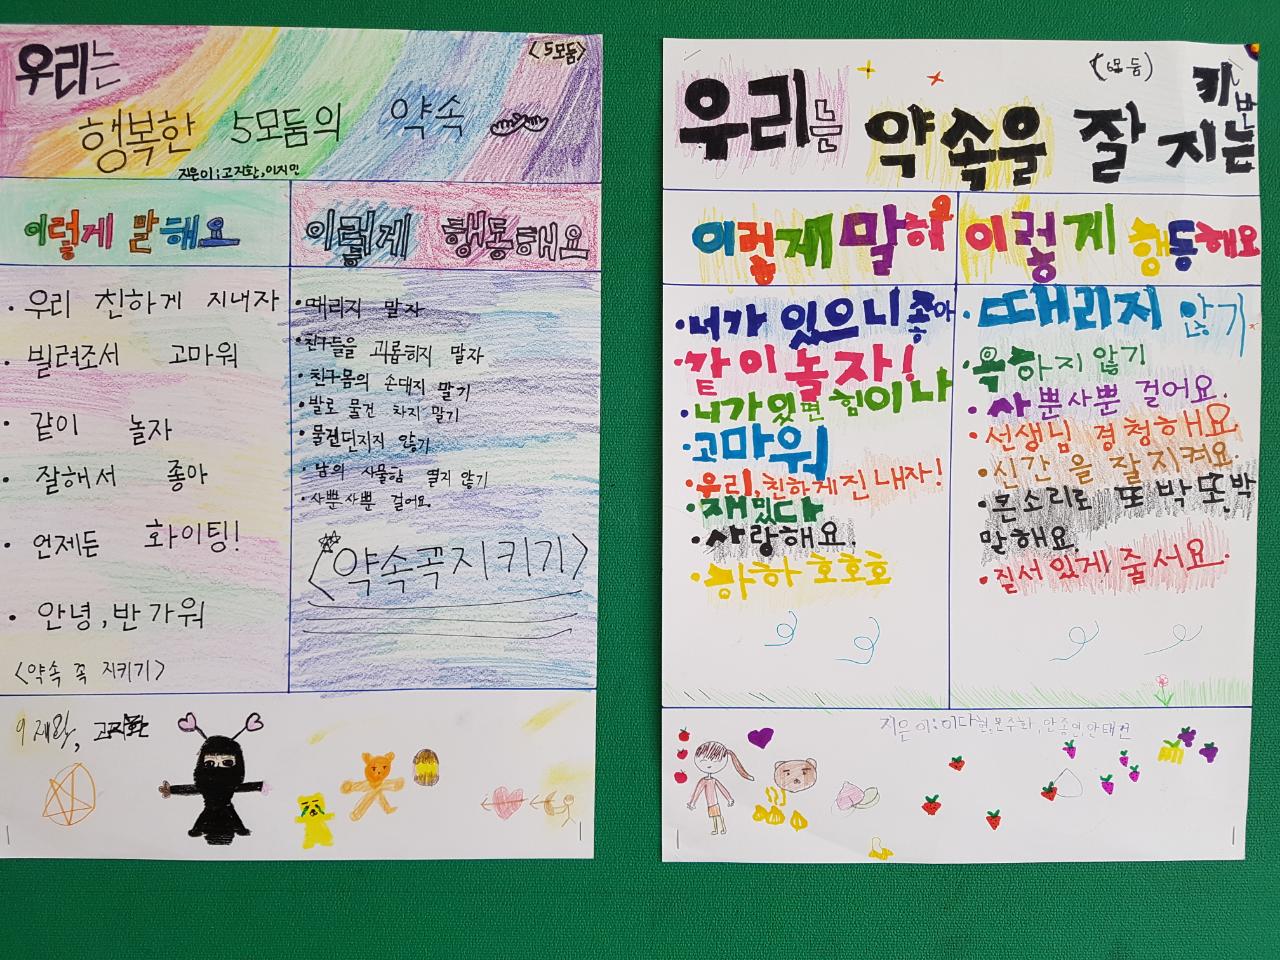 〈5모둠〉
우리는
행복한 5모둠의 약속
지은이:고지환,이지민
이렇게 말해요
· 우리 친하게 지내자
· 빌려조서 고마워
· 같이 놀자
· 잘해서 좋아
· 언제든 화이팅!
· 안녕,반가워
〈약속 꼭 지키기〉
이렇게 행동해요
· 때리지 말자
· 친구들을 괴롭히지 말자
· 친구몸의 손대지 말기
· 발로 물건 차지 말기
· 물건던지지 않기
· 남의 사물함 열지 않기
· 사뿐사뿐 걸어요.
〈약속꼭지키기〉
(6모둠)
우리는 약속을 잘 지키는 반
이렇게 말해요
· 너가 있으니 좋아
· 같이 놀자!
· 너가있으면 힘이나
· 고마워
· 우리,친하게진내자!
· 재밌다
· 사랑해요.
· 하하 호호호
이렇게 행동해요
· 때리지 않기
· 욕하지 않기
· 사뿐사뿐 걸어요.
· 선생님 경청해요
· 신간을 잘지켜요.
· 큰소리로 또박또박
말해요.
· 질서있게 줄서요.